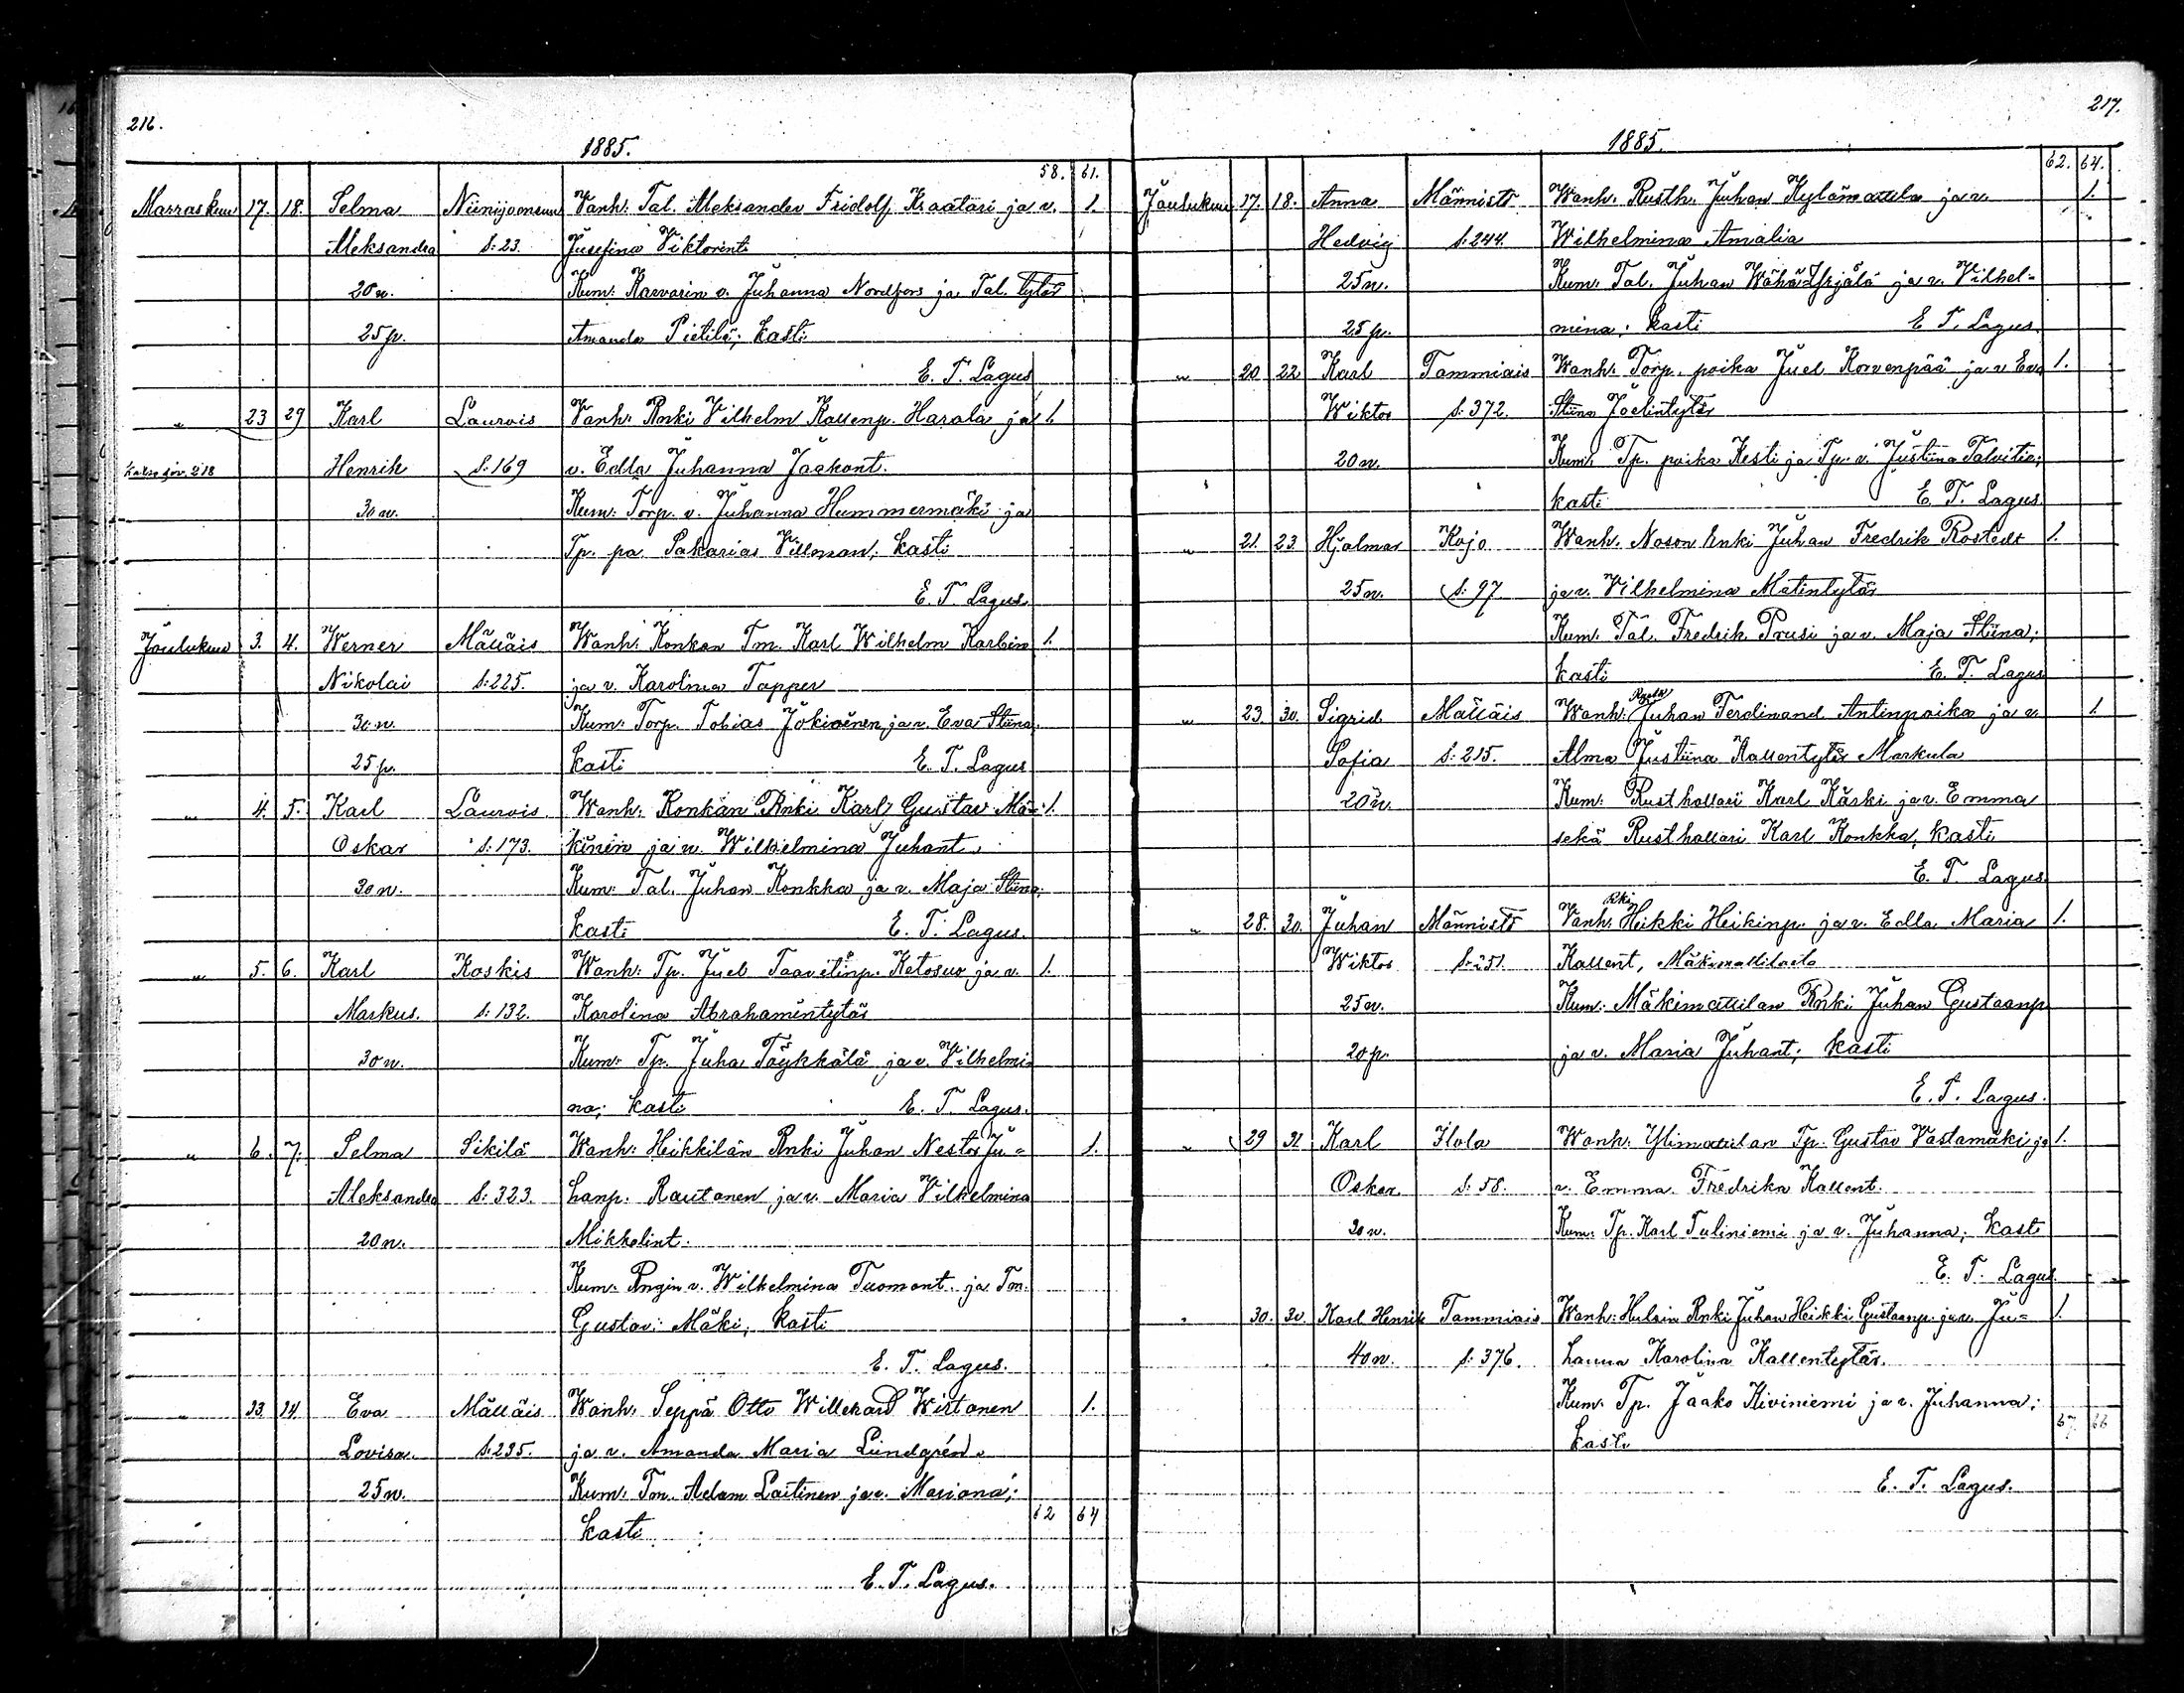 216.
1885.
58. 61.
Marraskuu 17. 18. Selma Niinijoensuu Vanh: Tal. Aleksander Fridolf Kraatari ja v. 1.
Aleksandra S: 23. Josefina Viktorint.
20 v. Kum: Karvarin v. Juhanna Nordfors ja Tal. tytär
25 p. Amanda Pietilä; kasti
E. T. Lagus
" 23 29 Karl Laurois Vanh: Rnki Vilhelm Kallenp. Harala ja 1.
Katso siv. 218 Henrik S: 169 v. Edla Juhanna Jaakont.
30 v. Kum: Torp. v. Juhanna Hummermäki ja
Tp. pa Sakarias Villman; kasti
E. T. Lagus.
Joulukuu 3. 4. Werner Mälläis Wanh: Konkan Tm. Karl Wilhelm Karbin 1.
Nikolai S: 225. ja v. Karolina Tapper
30 v. Kum: Torp. Tobias Jokioinen ja v. Eva Stiina;
25 p. kasti E. T. Lagus
" 4. 5. Karl Laurois Wanh: Konkan Rnki Karl Gustav Mä- 1.
Oskar S: 173. kinen ja v. Wilhelmina Juhant.
30 v. Kum: Tal. Juhan Konkka ja v. Maja Stiina;
kasti E. T. Lagus.
" 5. 6. Karl Koskis Wanh: Tp. Juel Taavetinp. Ketosuo ja v. 1.
Markus. S: 132. Karolina Abrahamintytär
30 v. Kum: Tp. Juha Töykkälä ja v. Vilhelmi-
na; kasti E. T. Lagus.
" 6. 7. Selma Sikilä Wanh: Heikkilän Rnki Juhan Nestor Ju- 1.
Aleksandra S: 323. hanp. Rautanen ja v. Maria Vilhelmina
20 v. Mikkelint.
Kum: Rngin v. Wilhelmina Tuomont. ja Tm.
Gustav Mäki; kasti
E. T. Lagus.
" 13. 14. Eva Mälläis Wanh: Seppä Otto Willehard Wirtanen 1.
Lovisa. S: 235. ja v. Amanda Maria Lundgrén.
25 v. Kum: Tm. Adam Laitinen ja v. Mariana;
62 64
kasti
E. T. Lagus.
217.
1885.
62. 64.
Joulukuu 17. 18. Anna Männistö Wanh: Rusth. Juhan Kylämattila ja v. 1.
Hedvig S: 244. Wilhelmina Amalia
25 v. Kum: Tal. Juhan Wähä Yrjälä ja v. Vilhel-
25 p. mina; kasti E. T. Lagus.
" 20 22 Karl Tammiais Wanh: Torp. poika Juel Korvenpää ja v. Eva 1.
Wiktor S: 372. Stiina Joelintytär
20 v. Kum: Tp. poika Kesti ja Tp. v. Justiina Talvitie;
kasti E. T. Lagus.
" 21. 23. Hjalmar Kojo Wanh. Nason Rnki Juhan Fredrik Rostedt 1.
25 v. S: 97 ja v. Vilhelmina Matintytär
Kum: Tal. Fredrik Prusi ja v. Maja Stiina;
kasti E. T. Lagus
" 23. 30. Sigrid Mälläis Wanh: Juhan Ferdinand Antinpoika ja v. 1.
Sofia S: 215. Alma Justiina Kallentytär Markula
20 v. Kum: Rusthollari Karl Käski ja v. Emma
sekä Rusthollari Karl Konkka; kasti
E. T. Lagus
Rki
" 28. 30. Juhan Männistö Vanh: Heikki Heikinp. ja v. Edla Maria 1.
Wiktor S: 251. Kallent, Mäkimattilasta
25 v. Kum: Mäkimattilan Rnki Juhan Gustaanp
20 p. ja v. Maria Juhant; kasti
E. T. Lagus.
" 29 31 Karl Ilola Wanh: Ylimattilan Tp. Gustav Vastamäki ja 1.
Oskar S: 58. v. Emma Fredrika Kallent.
20 v. Kum: Tp. Karl Tuliniemi ja v. Juhanna; kasti
E. T. Lagus.
" 30. 30. Karl Henrik Tammiais Wanh: Rnki Juhan Heikki Gustaanp. ja v. Ju- 1.
40 v. S: 376. hanna Karolina Kallentytär.
Kum: Tp. Jaako Kiviniemi ja v. Juhanna;
67 66
kasti
E. T. Lagus.